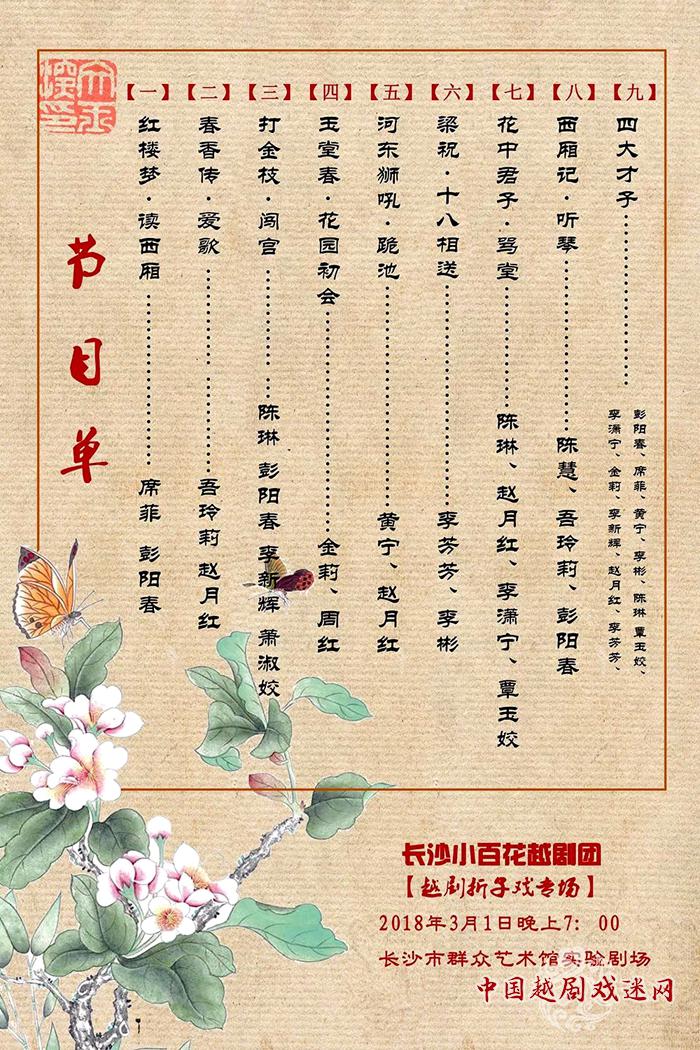 节目单
【一】红楼梦·读西厢………………席菲 彭阳春
【二】春香传·爱歌………………吾玲莉 赵月红
【三】打金枝·闯宫………………陈琳 彭阳春 李新辉 萧淑姣
【四】玉堂春·花园初会………………金莉、周红
【五】河东狮吼·跪池………………黄宁、赵月红
【六】梁祝·十八相送………………李芳芳、李彬
【七】花中君子·骂堂………………陈琳、赵月红、李潇宁、覃玉姣
【八】西厢记·听琴………………陈慧、吾玲莉、彭阳春
【九】四大才子………………
彭阳春、席菲、黄宁、李彬、陈琳 覃玉姣、
李潇宁、金莉、李新辉、赵月红、李芳芳、
长沙小百花越剧团
【越剧折子戏专场】
2018年3月1日晚上7：00
长沙市群众艺术馆实验剧场
中国越剧戏迷网